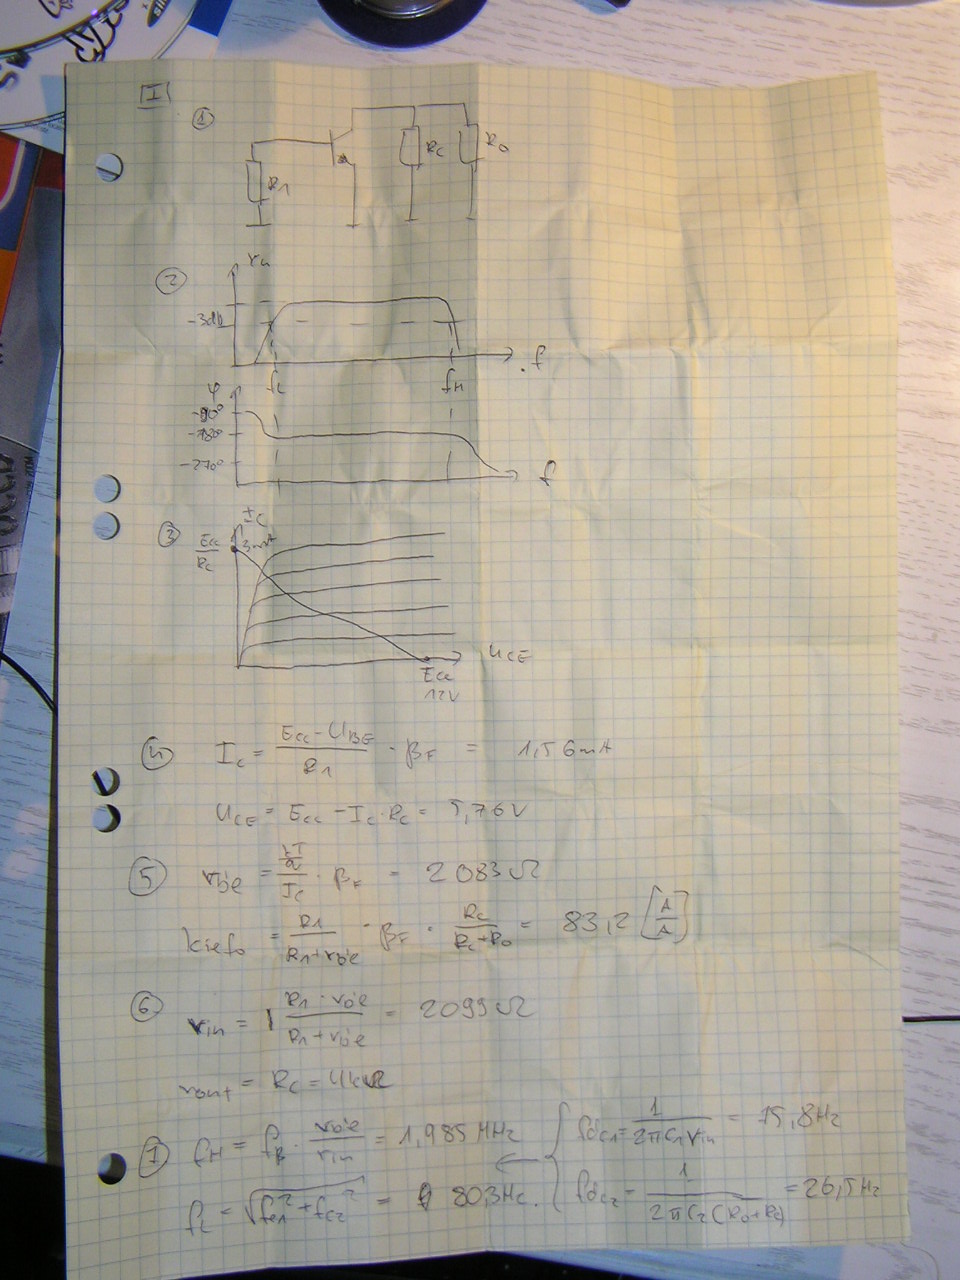 I
①
R1
Rc
R0
②
-3db
f
fL
fH
φ
-90°
-180°
-270°
f
③
Ic
Ecc/Rc
3mA
UCE
Ecc
12V
④ Ic = (Ecc - UBE)/R1 · βF = 1,56mA
UCE = Ecc - Ic · Rc = 5,76V
⑤ rb'e = (kT/q)/Ic · βF = 2083Ω
kief0 = R1/(R1+rb'e) · βF · Rc/(Rc+R0) = 83,2 [A/A]
⑥ rin = (R1 · rb'e)/(R1+rb'e) = 2099Ω
rout = Rc = 4kΩ
⑦ fH = fβ · rb'e/rin = 1,985MHz
fdc1 = 1/(2πC1rin) = 15,8Hz
fL = √(fc1² + fc2²) =
fdc2 = 1/(2πC2(R0+Rc)) = 26,5Hz